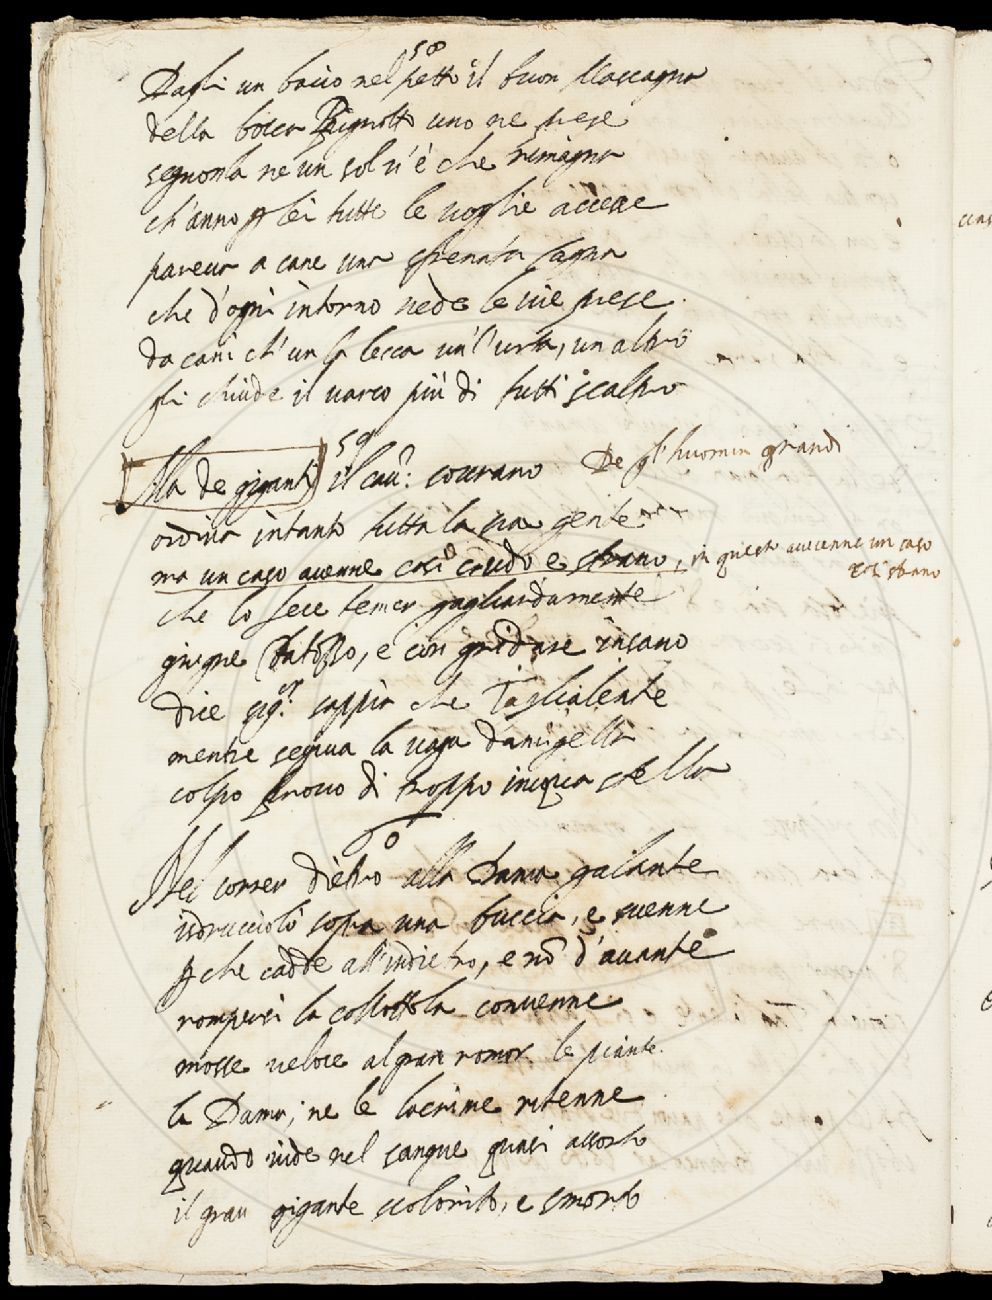 58
Dagli un bacio nel petto il buon Mascagna
della bocca Pignotto uno ne prese
segnorla ne un sol v'è che rimagna
ch'anno p lei tutte le voglie accese
pareva a cane una sfrenata cagna
che d'ogni intorno vede le vie prese
da cani ch'un la lecca un l'urta, un altro
gli chiude il varco più di tutti scaltro
59
Ma de giganti il cau: sourano De gl'huomin grandi
ordina intanto tutta la sua gente
ma un caso auenne così crudo e strano, in questo auuenne un caso
così strano
che lo fece temer gagliardamente
giugne, e con gridare insano
dice sig.or sappia che Taglialente
mentre seguua la vaga damigella
colpo prouo di troppo iniqua stella
60
Nel correr dietro alla Dama galante
isdrucciolò sopra una buccia, e suenne
p che cadde all'indietro, e nõ d'auante
rompersi la collottola conuenne
mosse veloce al gran romor le piante
la Dama, ne le lacrime ritenne
quando vide nel sangue quasi assorto
il gran gigante scolorito, e smorto